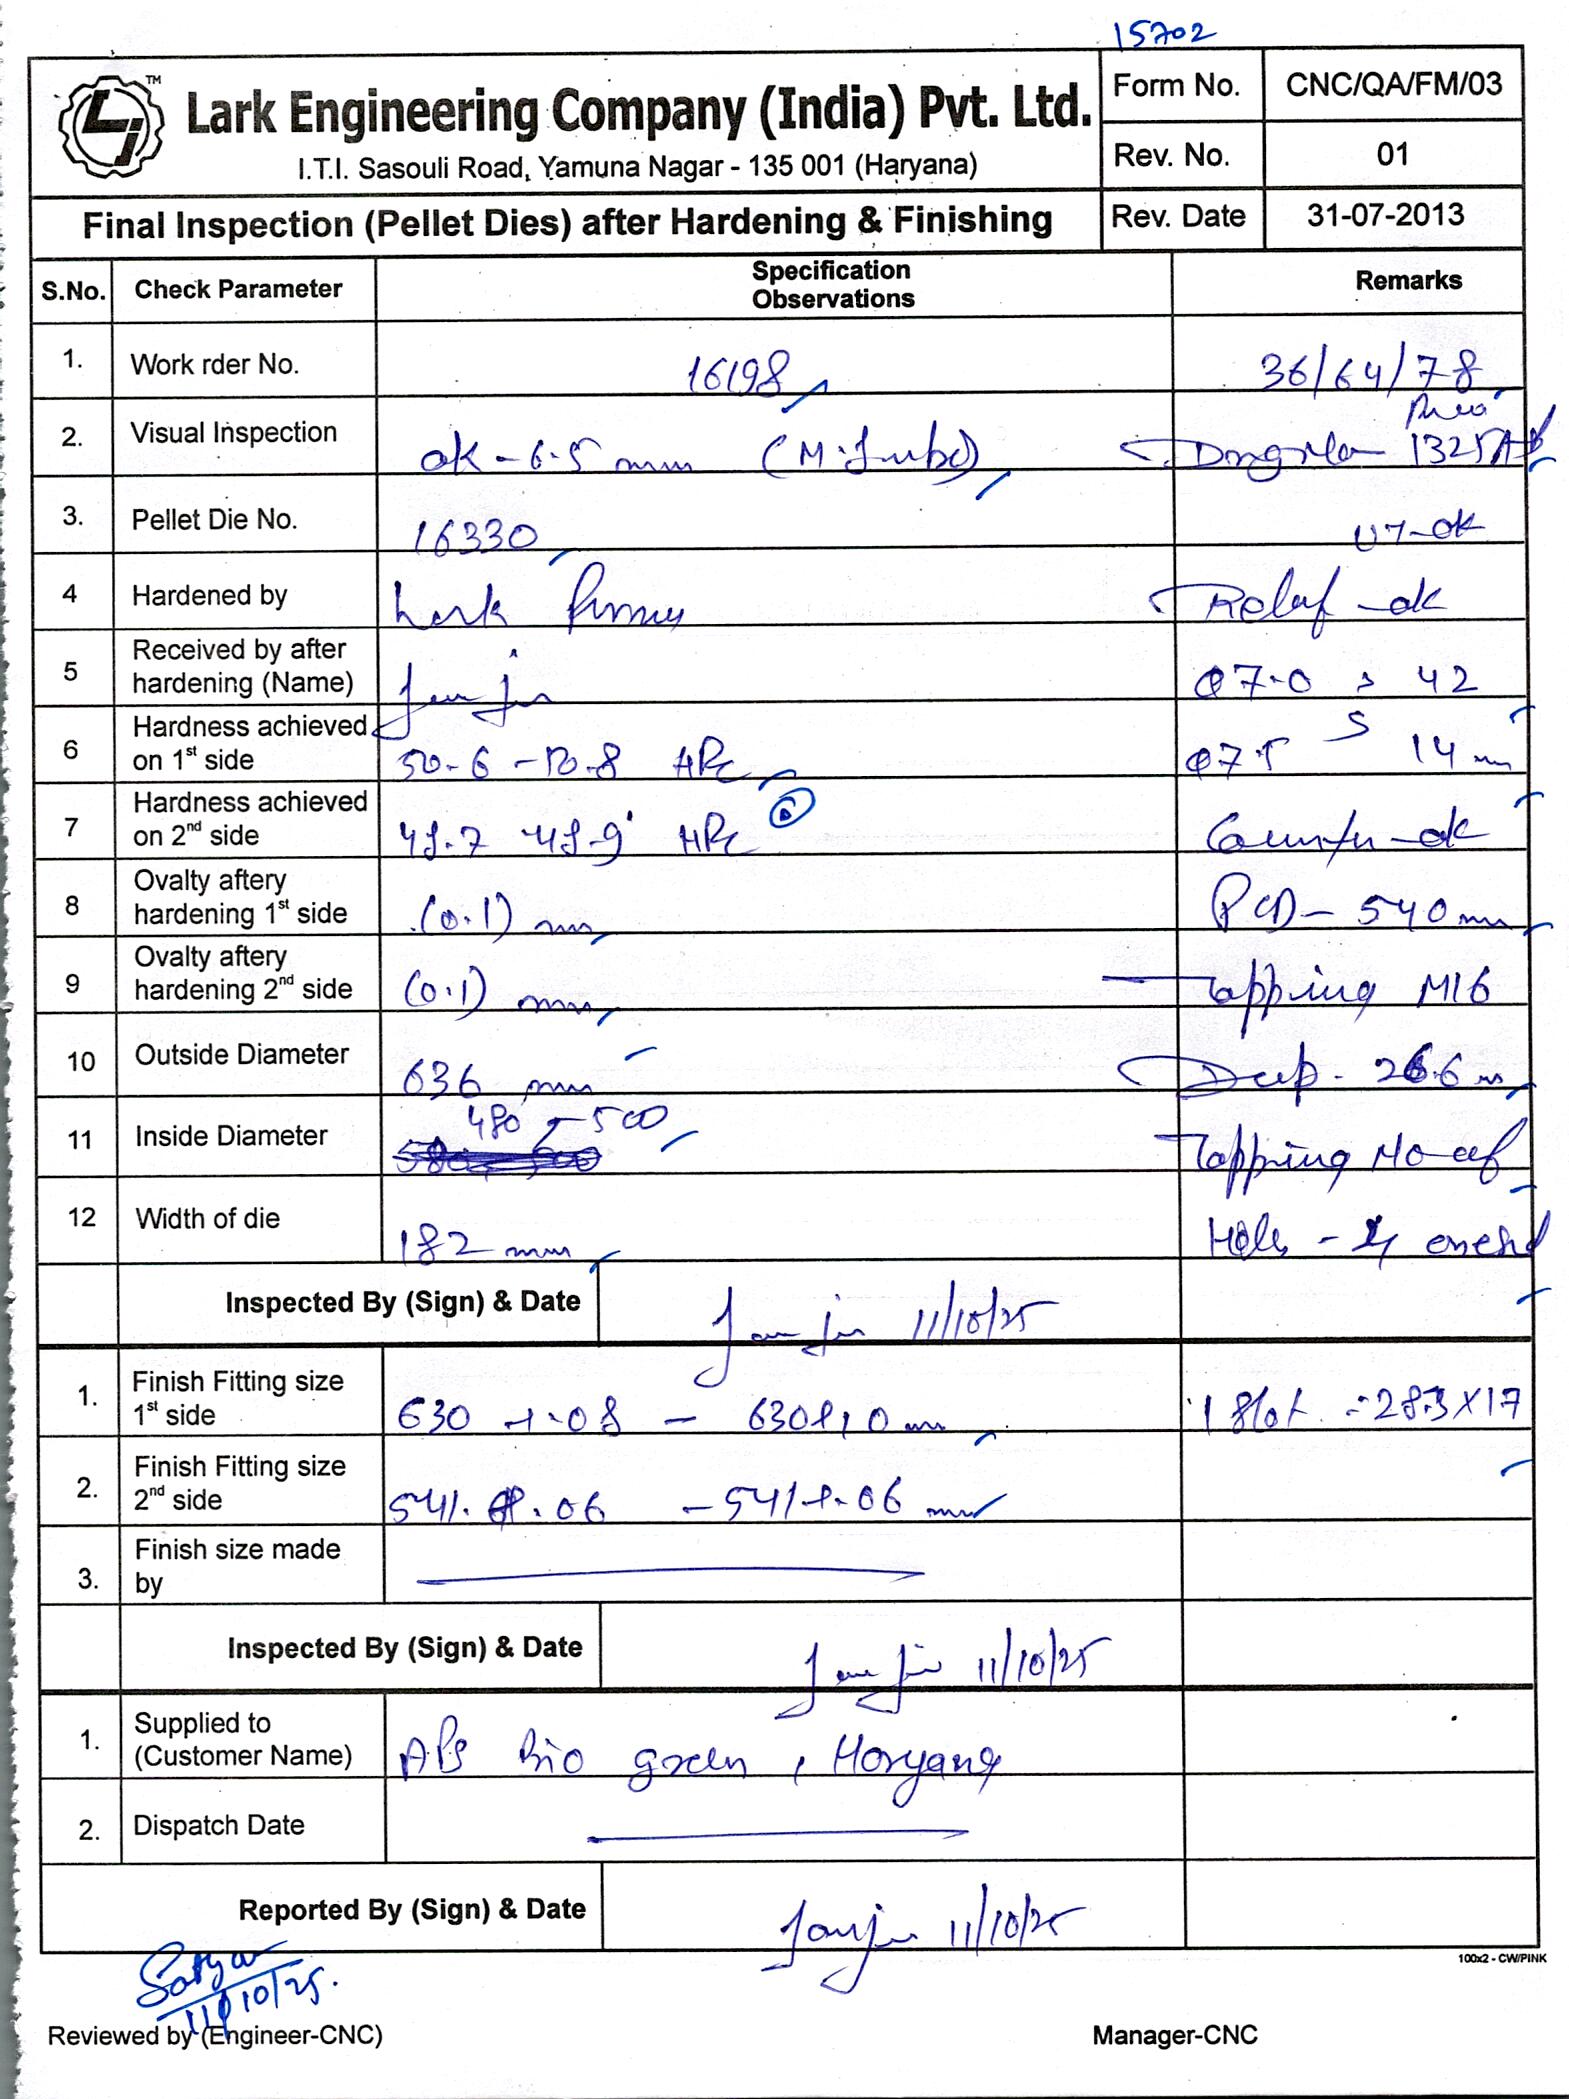 15702
Lark Engineering Company (India) Pvt. Ltd.
TM
I.T.I. Sasouli Road, Yamuna Nagar - 135 001 (Haryana)
Form No. CNC/QA/FM/03
Rev. No. 01
Final Inspection (Pellet Dies) after Hardening & Finishing
Rev. Date 31-07-2013
S.No. Check Parameter Specification Observations Remarks
1. Work rder No. 16198 36/64/78
2. Visual Inspection ok - 6.5 mm 1325
3. Pellet Die No. 16330 07-ok
4 Hardened by Lark - ok
5 Received by after hardening (Name) 07.0 42
6 Hardness achieved on 1st side 50.6 - 50.8 HRc 14 mm
7 Hardness achieved on 2nd side HRc - ok
8 Ovalty aftery hardening 1st side (0.1) mm PCD - 540 mm
9 Ovalty aftery hardening 2nd side (0.1) mm Tapping M16
10 Outside Diameter 636 mm Deep - 26.6 m
11 Inside Diameter 480 - 500 Tapping No of
12 Width of die 182 mm Holes -
Inspected By (Sign) & Date 11/10/25
1. Finish Fitting size 1st side 630 +.08 - 630+.10 mm 1 Slot - 28.3X17
2. Finish Fitting size 2nd side 541. .06 - 541+.06 mm
3. Finish size made by
Inspected By (Sign) & Date 11/10/25
1. Supplied to (Customer Name) Bio green, Haryana
2. Dispatch Date
Reported By (Sign) & Date 11/10/25
100x2 - CW/PINK
11/10/25.
Reviewed by (Engineer-CNC) Manager-CNC